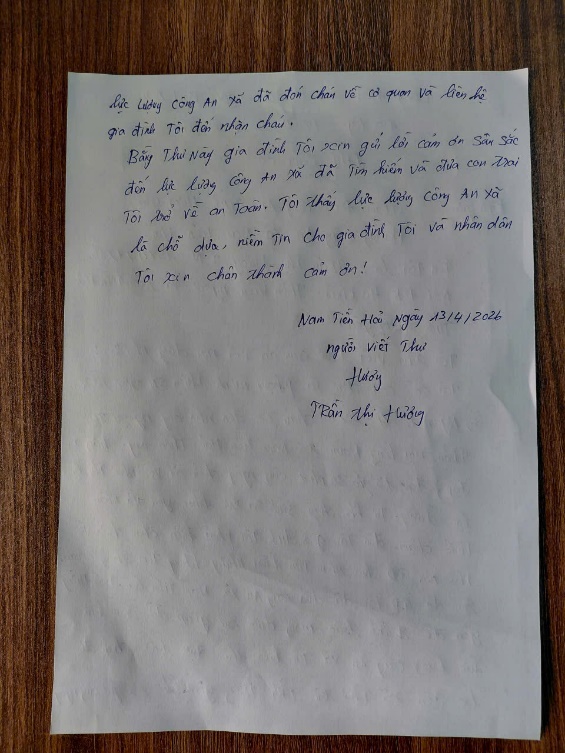 lực lượng công An xã đã đón cháu về cơ quan và liên hệ
gia đình Tôi đến nhận cháu.
Bằng Thư Này gia đình Tôi xin gửi lời cảm ơn Sâu Sắc
đến lực lượng Công An xã đã Tìm kiếm và đưa con trai
Tôi trở về an Toàn. Tôi thấy lực lượng công An xã
là chỗ dựa, niềm Tin cho gia đình Tôi và nhân dân
Tôi xin chân thành cảm ơn!
Nam Tiền Hải Ngày 13/4/2026
người viết Thư
Hương
TRần thị Hương